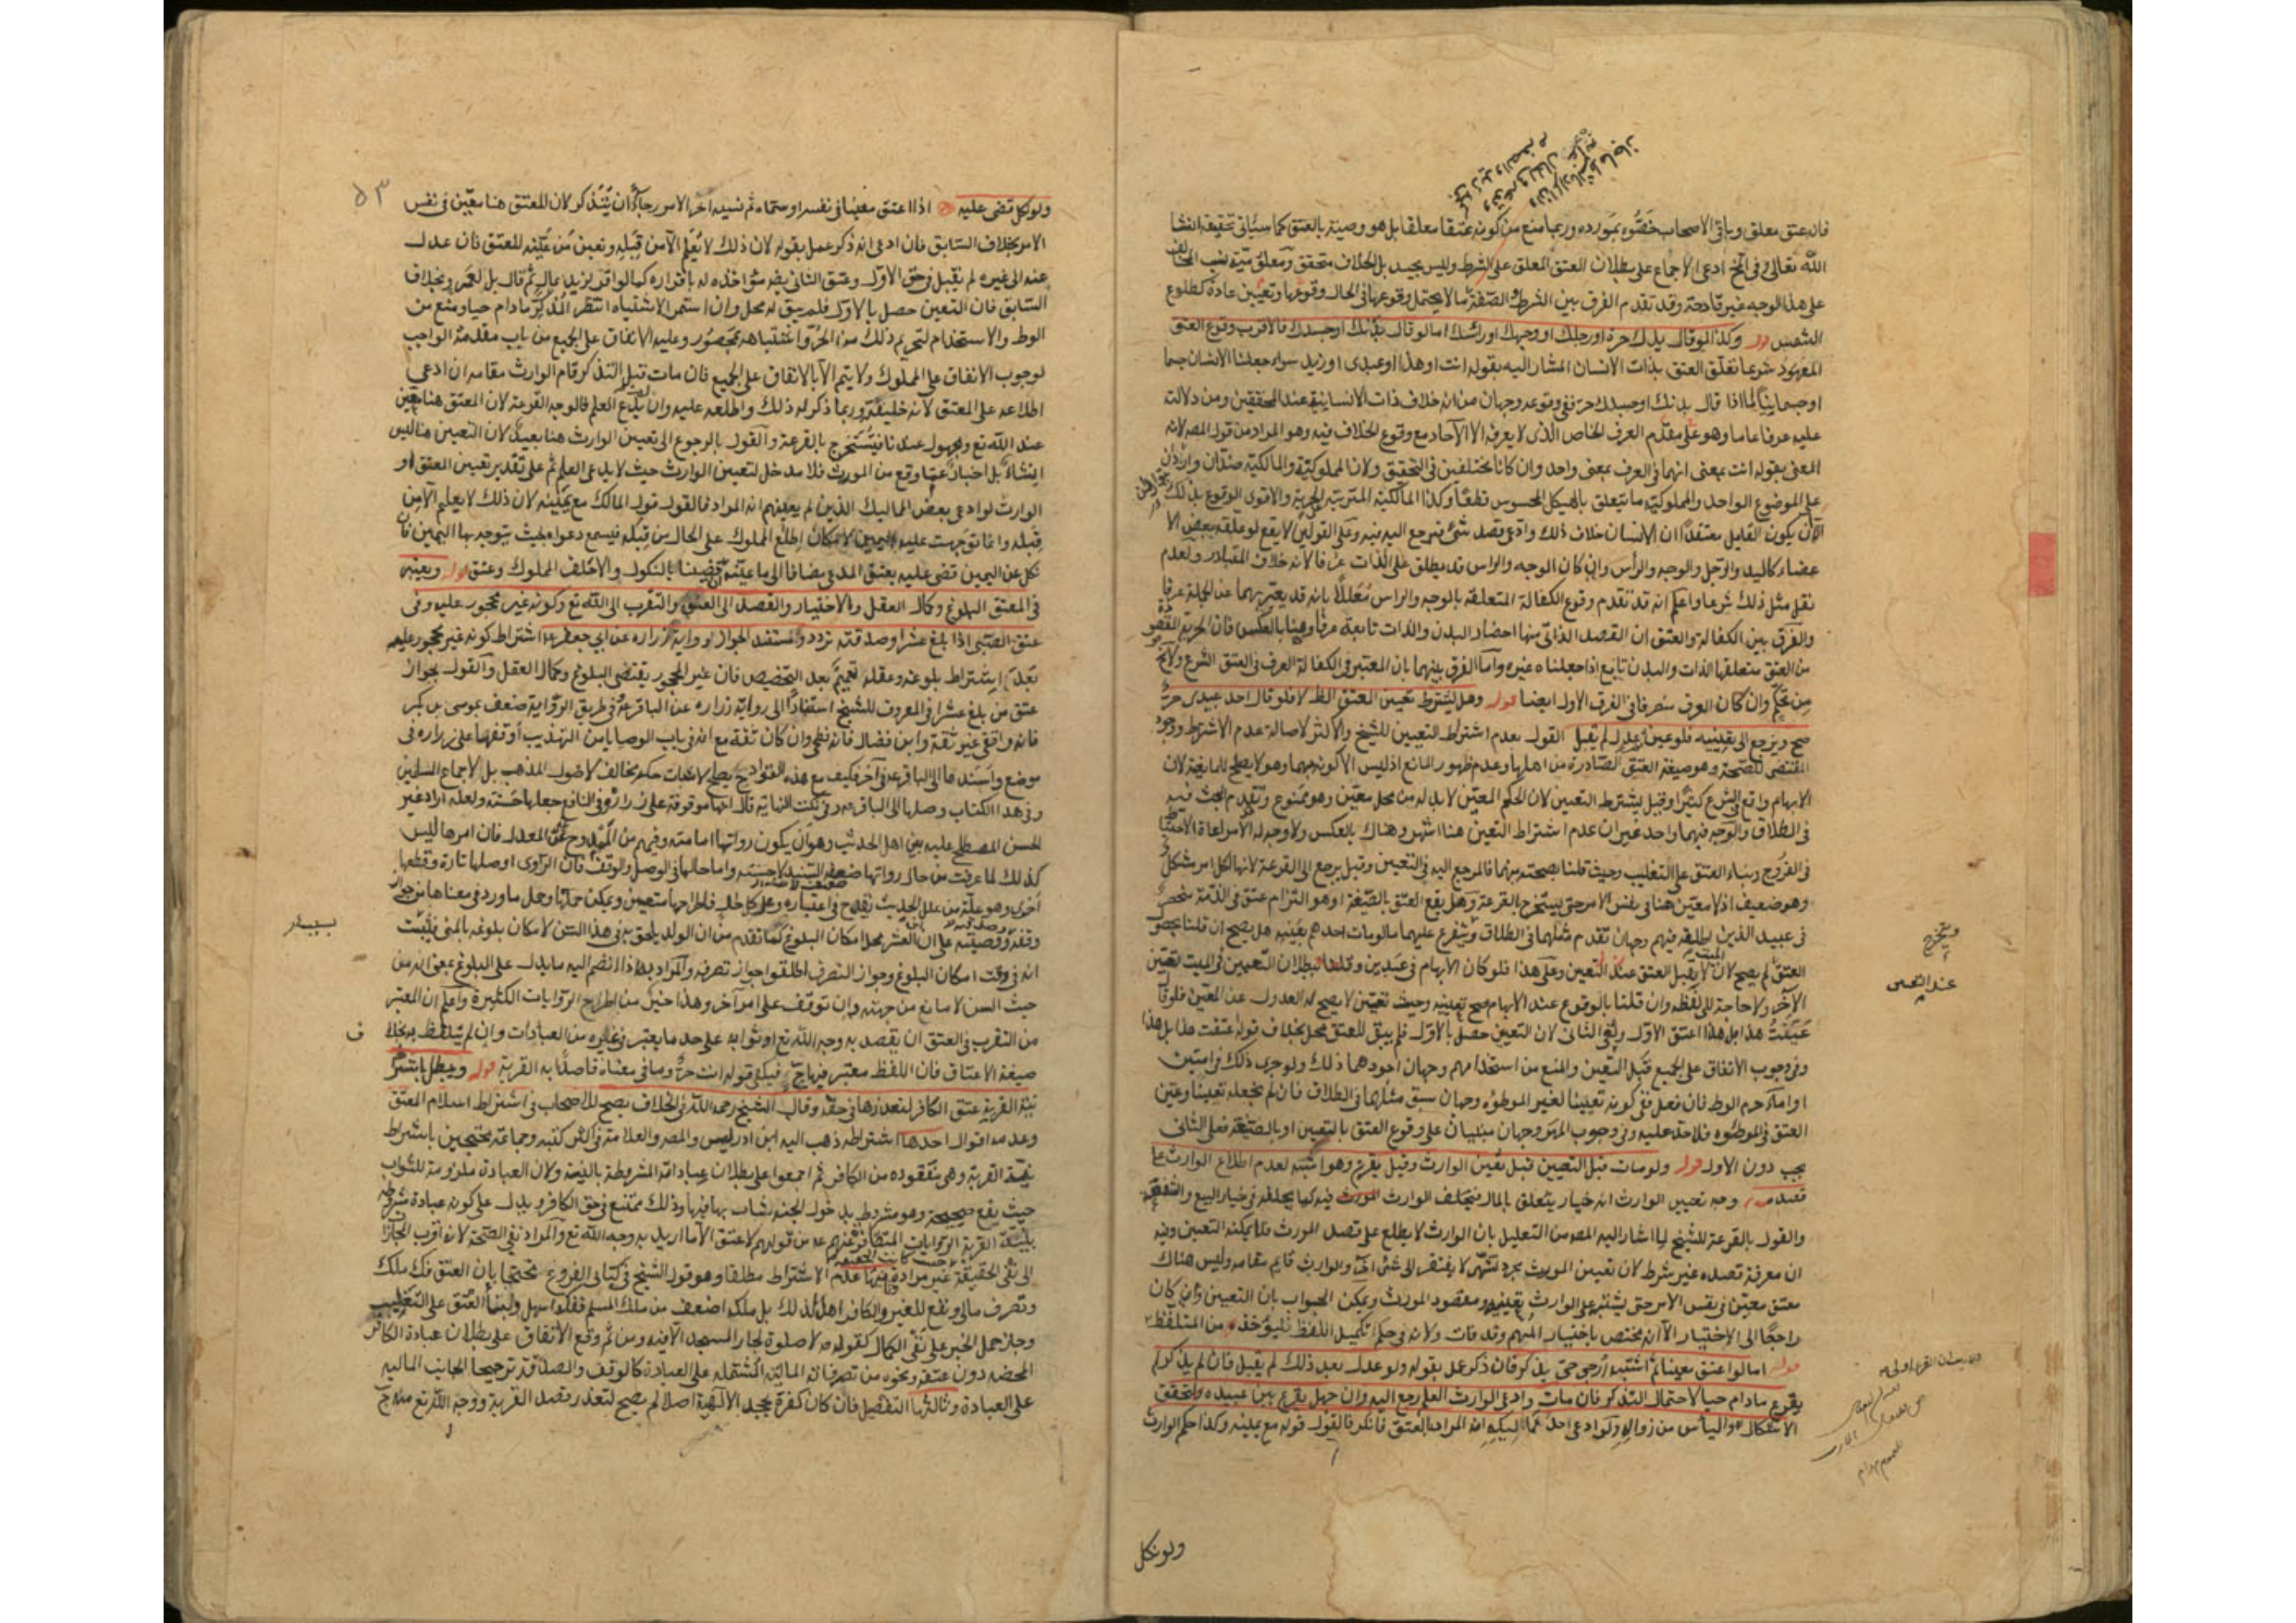 فانه عتق معلق وباقي الاصحاب خصّوه بمورده وربما منع من كونه عتقا معلقا بل هو وصية بالعتق كما سيأتي تحقيقه انشا
الله تعالى وفي ادعى الاجماع على بطلان العتق المعلق على الشرط وليس بجيد بل الخلاف متحقق ومعلق
على هذا الوجه غير قادحة وقد تقدم الفرق بين الشرط والصفة ما لا يحتمل وقوعها في الحال وقوعها وتعيين عادة كطلوع
الشمس قوله وكذا لو قال يدك حرة او رجلك او وجهك او راسك اما لو قال بدنك او جسدك فالاقرب وقوع العتق
المعهود شرعا تعلق العتق بذات الانسان المشار اليه بقوله انت او هذا او عبدي او زيد سواء جعلنا الانسان جسما
او جسمانيا اما اذا قال بدنك او جسدك حر ففي وقوعه وجهان من انه خلاف ذات الانسانية عند المحققين ومن دلالته
عليه عرفا عاما وهو مقدم العرف الخاص الذي لا يعرفه الا الآحاد مع وقوع الخلاف فيه وهو المراد من قول المصر لانه
المعنى بقوله انت بمعنى انهما في العرف بمعنى واحد وان كانا مختلفين في التحقيق ولان المملوكية والمالكية ضدان واردان
على الموضوع الواحد والمملوكية ما يتعلق بالهيكل المحسوس قطعا وكذا المالكية المترتبة الحرية والاقوى الوقوع بذلك
الا ان يكون القايل معتقدا ان الانسان خلاف ذلك وادعى قصد شئ فيرجع اليه فيه وعلى القولين لا يقع لو علقه ببعض الا
عضاء كاليد والرجل والوجه والرأس وان كان الوجه والراس قد يطلق على الذات عرفا لانه خلاف المتبادر ولعدم
نقل مثل ذلك شرعا واعلم انه قد تقدم وقوع الكفالة المتعلقة بالوجه والراس معللا بانه قد يعبر بهما عن الجملة عرفا
والفرق بين الكفالة والعتق ان القصد الذاتي منها احضار البدن والذات تابعة عرفا وهنا بالعكس فان الحرية المقصودة
من العتق متعلقها الذات والبدن تابع اذا جعلناه غيره واما الفرق بينهما بان المعتبر في الكفالة العرف وفي العتق الشرع ولا
من تحكم وان كان العرف منصرفا في الفرق الاول ايضا قوله وهل يشترط تعيين العتق الظ لا فلو قال احد عبيدي حر
صح ويرجع الى تعيينه فلو عين ثم عدل لم يقبل القول بعدم اشتراط التعيين للشيخ والاكثر لاصالة عدم الاشتراط ووجود
المقتضى للصحة وهو صيغة العتق الصادرة من اهلها وعدم ظهور المانع اذ ليس الا كونه مبهما وهو لا يصلح للمانعية لان
الابهام واقع في الشرع كثيرا وقيل يشترط التعيين لان الحكم المعين لا بد له من محل معين وهو ممنوع وتقدم البحث فيه
في الطلاق والوجه فيهما واحد غير ان عدم اشتراط التعيين هنا اشهر وهناك بالعكس ولا وجه له الا مراعاة الاحتياط
في الفروج وبناء العتق على التغليب وحيث قلنا بصحته مبهما فالمرجع اليه في التعيين وقيل يرجع الى القرعة لانها لكل امر مشكل
وهو ضعيف اذ لا معين هنا في نفس الامر حتى يستخرج بالقرعة وهل يقع العتق بالصيغة او هو التزام عتق في الذمة منحصر
في عبيد الذين لفظه فيهم وجهان تقدم مثلهما في الطلاق ويتفرع عليهما ما لو مات احدهم بعينه هل يصح ان قلنا
العتق لم يصح لان الميت لا يقبل العتق عند التعيين وعلى هذا فلو كان الابهام في عبدين وقلنا ببطلان التعيين في الميت تعين
الآخر ولا حاجة الى لفظه وان قلنا بالوقوع عند الابهام صح تعيينه وحيث تعين لا يصح له العدول عن المعين فلو قال
عينت هذا بل هذا اعتق الاول ولغى الثاني لان التعيين حصل بالاول فلم يبق للعتق محل بخلاف قوله عتقت هذا بل هذا
وفي وجوب الانفاق على الجميع قبل التعيين والمنع من استخدامهم وجهان اجودهما ذلك ولو جرى ذلك في امتين
او اماء حرم الوطئ فان فعل ففي كونه تعيينا لغير الموطؤه وجهان سبق مثلهما في الطلاق فان لم نجعله تعيينا وعين
العتق في الموطؤه فلا حد عليه وفي وجوب المهر وجهان مبنيان على وقوع العتق بالتعيين او بالصيغة فعلى الثاني
يجب دون الاول قوله ولو مات قبل التعيين قيل يعين الوارث وقيل يقرع وهو اشبه لعدم اطلاع الوارث على
قصده وجه تعيين الوارث انه خيار يتعلق بالمال فيخلف الوارث المورث فيه كما يخلفه في خيار البيع والشفعة
والقول بالقرعة للشيخ لما اشار اليه المصر من التعليل بان الوارث لا يطلع على قصد المورث فلا يمكنه التعيين وفيه
ان معرفة قصده غير شرط لان تعيين المورث مجرد تشهي لا يفتقر الى شئ اخر والوارث قايم مقامه وليس هناك
معتق معين في نفس الامر حتى يشتبه على الوارث تعيينه ومقصود المورث ويمكن الجواب بان التعيين وان كان
راجعا الى الاختيار الا انه مختص باختيار المبهم وقد فات ولانه في حكم تكميل اللفظ فليؤخذ من المتلفظ
قوله اما لو اعتق معينا ثم اشتبه ارجى حتى يذكر فان ذكر عمل بقوله ولو عدل بعد ذلك لم يقبل فان لم يذكر لم
يقرع مادام حيا لاحتمال التذكر فان مات وادعى الوارث العلم رجع اليه وان جهل يقرع بين عبيده لتحقق
الاشكال والياس من زواله ولو ادعى احد مماليكه انه المراد بالعتق فانكر فالقول قوله مع يمينه وكذا حكم الوارث
ويستخرج
عند التعيين
ولو نكل
٥٣
ولو نكل قضى عليه اذا اعتق معينا في نفسه او سماه ثم نسيه اخر الامر رجاء ان يتذكر لان المعتق هنا معين في نفس
الامر بخلاف السابق فان ادعى انه ذكر عمل بقوله لان ذلك لا يعلم الا من قبله وتعين من عينه للعتق فان عدل
عنه الى غيره لم يقبل في حق الاول وعتق الثاني ايضا مؤاخذة له باقراره كما لو اقر لزيد بمال ثم قال بل لعمرو بخلاف
السابق فان التعيين حصل بالاول فلم يبق له محل وان استمر الاشتباه انتظر التذكر مادام حيا ومنع من
الوطئ والاستخدام لتحريم ذلك من الحر واشتباهه بمحصور وعليه الانفاق على الجميع من باب مقدمة الواجب
لوجوب الانفاق على المملوك ولا يتم الا بالانفاق على الجميع فان مات قبل التذكر قام الوارث مقامه ان ادعى
اطلاعه على المعتق لانه خليفته وربما ذكر له ذلك واطلعه عليه وان لم يدع العلم فالوجه القرعة لان المعتق هنا معين
عند الله تع ومجهول عندنا فيستخرج بالقرعة والقول بالرجوع الى تعيين الوارث هنا بعيد لان التعيين هنا ليس
انشاء بل اخبار عما وقع من المورث فلا مدخل لتعيين الوارث حيث لا يدعى العلم ثم على تقدير تعيين المعتق او
الوارث لو ادعى بعض المماليك الذين لم يعينهم انه المراد فالقول قول المالك مع يمينه لان ذلك لا يعلم الا من
قبله وانما توجهت عليه اليمين لامكان اطلاع المملوك على الحال من قبله فيسمع دعواه بحيث يتوجه بها اليمين فان
نكل عن اليمين قضى عليه بعتق المدعى مضافا الى ما عينه ان قضينا بالنكول والا حلف المملوك وعتق قوله ويعتبر
في المعتق البلوغ وكمال العقل والاختيار والقصد الى العتق والتقرب الى الله تع وكونه غير محجور عليه وفي
عتق الصبي اذا بلغ عشرا وصدقته تردد ومستند الجواز رواية زرارة عن ابي جعفر ع اشتراط كونه غير محجور عليه
بعد اشتراط بلوغه وعقله تعميم بعد التخصيص فان غير المحجور يقتضى البلوغ وكمال العقل والقول بجواز
عتق من بلغ عشرا في المعروف للشيخ استنادا الى رواية زرارة عن الباقر ع وفي طريق الرواية ضعف بموسى بن بكر
فانه واقفي غير ثقة وابن فضال فانه فطحي وان كان ثقة مع انه في باب الوصايا من التهذيب أوقفها على زرارة في
موضع واسندها الى الباقر ع في آخر فكيف مع هذه القوادح يصلح لاثبات حكم مخالف لاصول المذهب بل لاجماع المسلمين
وفي هذا الكتاب وصلها الى الباقر وفي نكت النهاية قال انها موقوفة على زرارة وفي النافع جعلها حسنة ولعله اراد غير
الحسن المصطلح عليه بين اهل الحديث وهو ان يكون رواتها امامية وفيهم من الممدوح غير المعدل فان امرها ليس
كذلك لما عرفت من حال رواتها ضعيفة السند لا حسنة واما حالها في الوصل والوقف فان الراوى اوصلها تارة وقطعها
اخرى وهو علة من علل الحديث يقدح في اعتباره وعلى كل حال فاطراحها متعين ويمكن حملها وحمل ما ورد في معناها من جواز
وقفه ووصيته وصدقته على ان العشر محل امكان البلوغ كما تقدم من ان الولد يلحق به في هذا السن لامكان بلوغه بالمنى فلبثت
انه في وقت امكان البلوغ وجواز التصرف اطلقوا جواز تصرفه والمراد به اذا انضم اليه ما يدل على البلوغ بمعنى انه من
حيث السن لا مانع من جهته وان توقف على امر آخر وهذا خير من اطراح الروايات الكثيرة واعلم ان المعتبر
من التقرب في العتق ان يقصد به وجه الله تع او ثوابه على حد ما يعتبر في غيره من العبادات وان لم يتلفظ به بخلاف
صيغة الاعتاق فان اللفظ معتبر فيها ح فيكفى قوله انت حر وما في معناه قاصدا به القربة قوله ويبطل باشتراط
نية القربة عتق الكافر لتعذرها في حقه وقال الشيخ رحمه الله في الخلاف يصح للاصحاب في اشتراط اسلام المعتق
وعدمه اقوال احدها اشتراطه ذهب اليه ابن ادريس والمصر والعلامة في اكثر كتبه وجماعة محتجين باشتراط
نية القربة وهي مفقوده من الكافر ثم اجمعوا على بطلان عباداته المشروطة بالنية ولان العبادة ملزومة للثواب
حيث يقع صحيحة وهو مشروط بدخول الجنة يثاب بها فيها وذلك ممتنع في حق الكافر ويدل على كونه عبادة شرطه
بنية القربة الروايات المتظافرة عنهم ع من قولهم لا عتق الا ما اريد به وجه الله تع والمراد نفي الصحة لانه اقرب المجازات
الى نفى الحقيقة حيث كانت الحقيقة غير مرادة وثانيها عدم الاشتراط مطلقا وهو قول الشيخ في كتابي الفروع محتجا بان العتق فك ملك
وتصرف مالي ونفع للغير والكافر اهل لذلك بل ملكه اضعف من ملك المسلم ففكه اسهل ولبناء العتق على التغليب
وجاز حمل الخبر على نفى الكمال كقوله ص لا صلوة لجار المسجد الا فيه ومن ثم وقع الاتفاق على بطلان عبادة الكافر
المحضه دون عتقه ونحوه من تصرفاته المالية المشتمله على العبادة كالوقف والصدقة ترجيحا للجانب الماليه
على العبادة وثالثها التفصيل فان كان كفره بجحد الالهية اصلا لم يصح لتعذر قصد القربة ووجه الله تع منه ح
ف